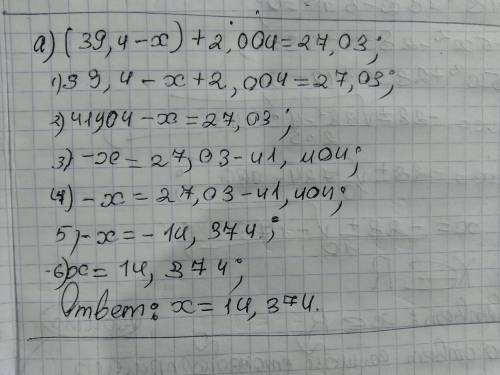 а) (39,4-x)+2,004=27,03;
1) 39,4-x+2,004=27,03;
2) 41,404-x=27,03;
3) -x=27,03-41,404;
4) -x=27,03-41,404;
5) -x=-14,374;
6) x=14,374;
Ответ: x=14,374.